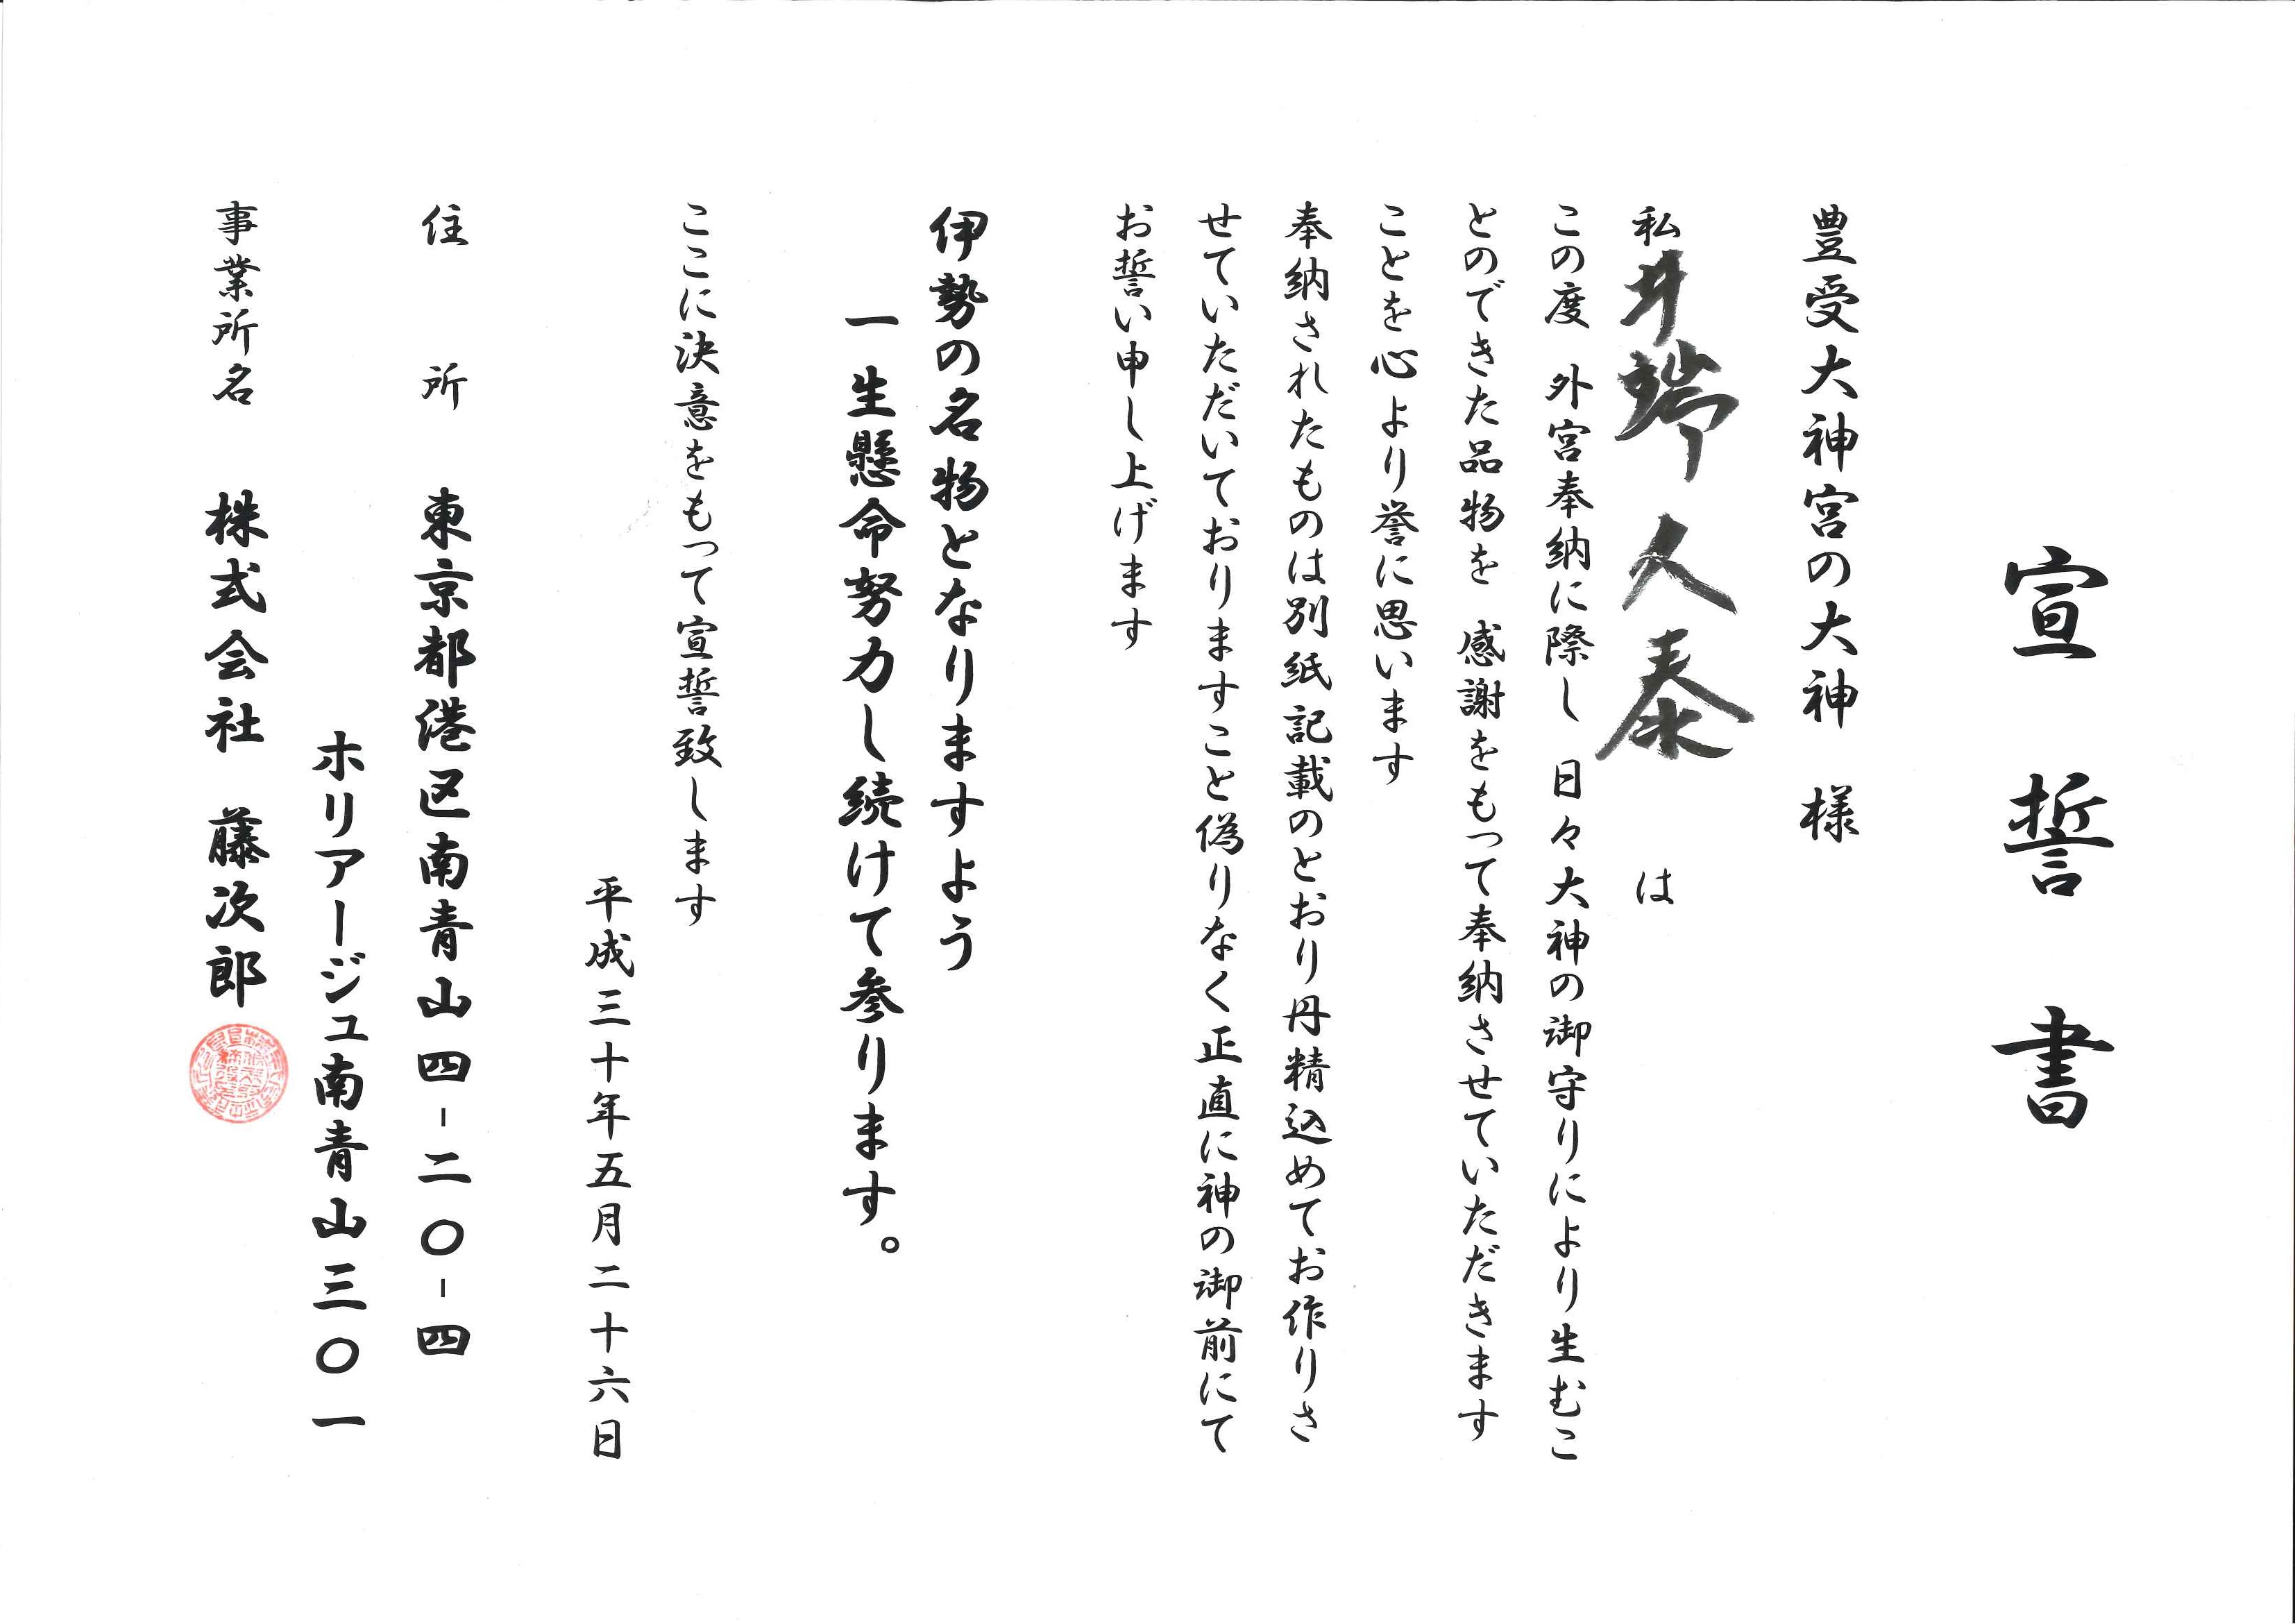 宣誓書
豊受大神宮の大神 様
私 井端人泰 は
この度 外宮奉納に際し 日々大神の御守りにより生むこ
とのできた品物を 感謝をもって奉納させていただきます
ことを心より誉に思います
奉納されたものは別紙記載のとおり丹精込めてお作りさ
せていただいておりますこと偽りなく正直に神の御前にて
お誓い申し上げます
伊勢の名物となりますよう
一生懸命努力し続けて参ります。
ここに決意をもって宣誓致します
平成三十年五月二十六日
住所 東京都港区南青山四-二〇-四
ホリアージュ南青山三〇一
事業所名 株式会社 藤次郎